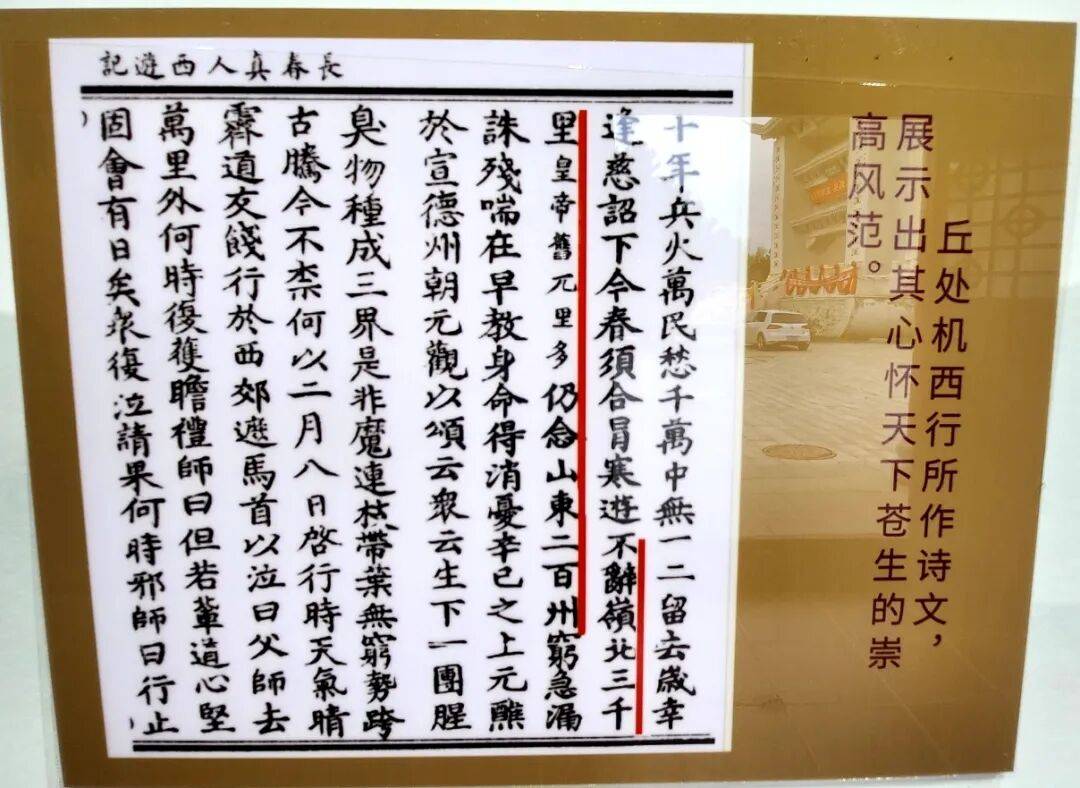 長春真人西遊記
十年兵火萬民愁千萬中無一二留去歲幸
逢慈詔下今春須合冒寒遊不辭嶺北三千
里皇帝舊兀里多仍念山東二百州窮急漏
誅殘喘在早教身命得消憂辛已之上元醮
於宣德州朝元觀以頌云衆云生下一團腥
臭物種成三界是非魔連枝帶葉無窮勢跨
古騰今不柰何以二月八日啓行時天氣晴
霽道友餞行於西郊遮馬首以泣曰父師去
萬里外何時復獲瞻禮師曰但若輩道心堅
固會有日矣衆復泣請果何時邪師曰行止
丘处机西行所作诗文，
展示出其心怀天下苍生的崇
高风范。